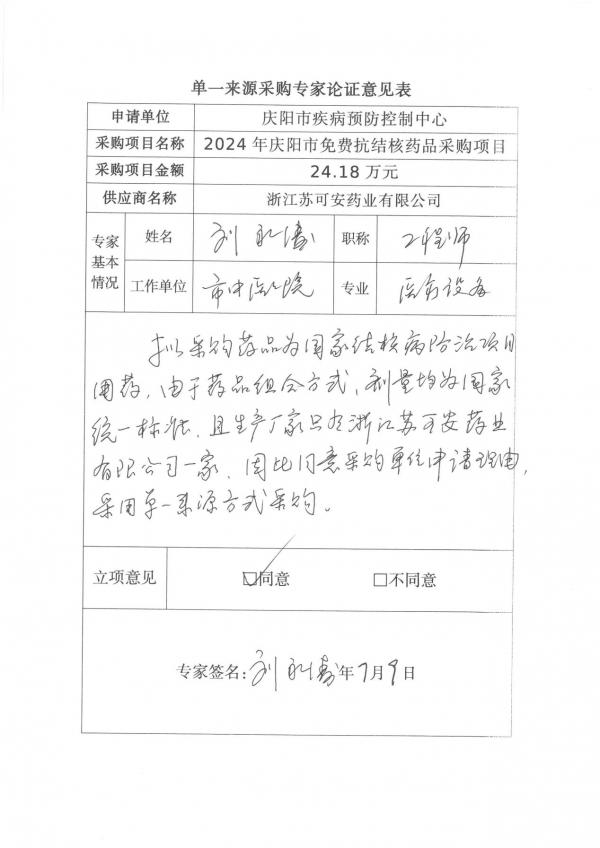 单一来源采购专家论证意见表
申请单位 庆阳市疾病预防控制中心
采购项目名称 2024年庆阳市免费抗结核药品采购项目
采购项目金额 24.18万元
供应商名称 浙江苏可安药业有限公司
专家基本情况 姓名 刘 职称 工程师
工作单位 市中医院 专业 医疗设备
拟采购药品为国家结核病防治项目
用药,由于药品组合方式、剂量均为国家
统一标准,且生产厂家只有浙江苏可安药业
有限公司一家,因此同意采购单位申请理由,
采用单一来源方式采购。
立项意见 ☑同意 □不同意
专家签名:刘 年7月9日